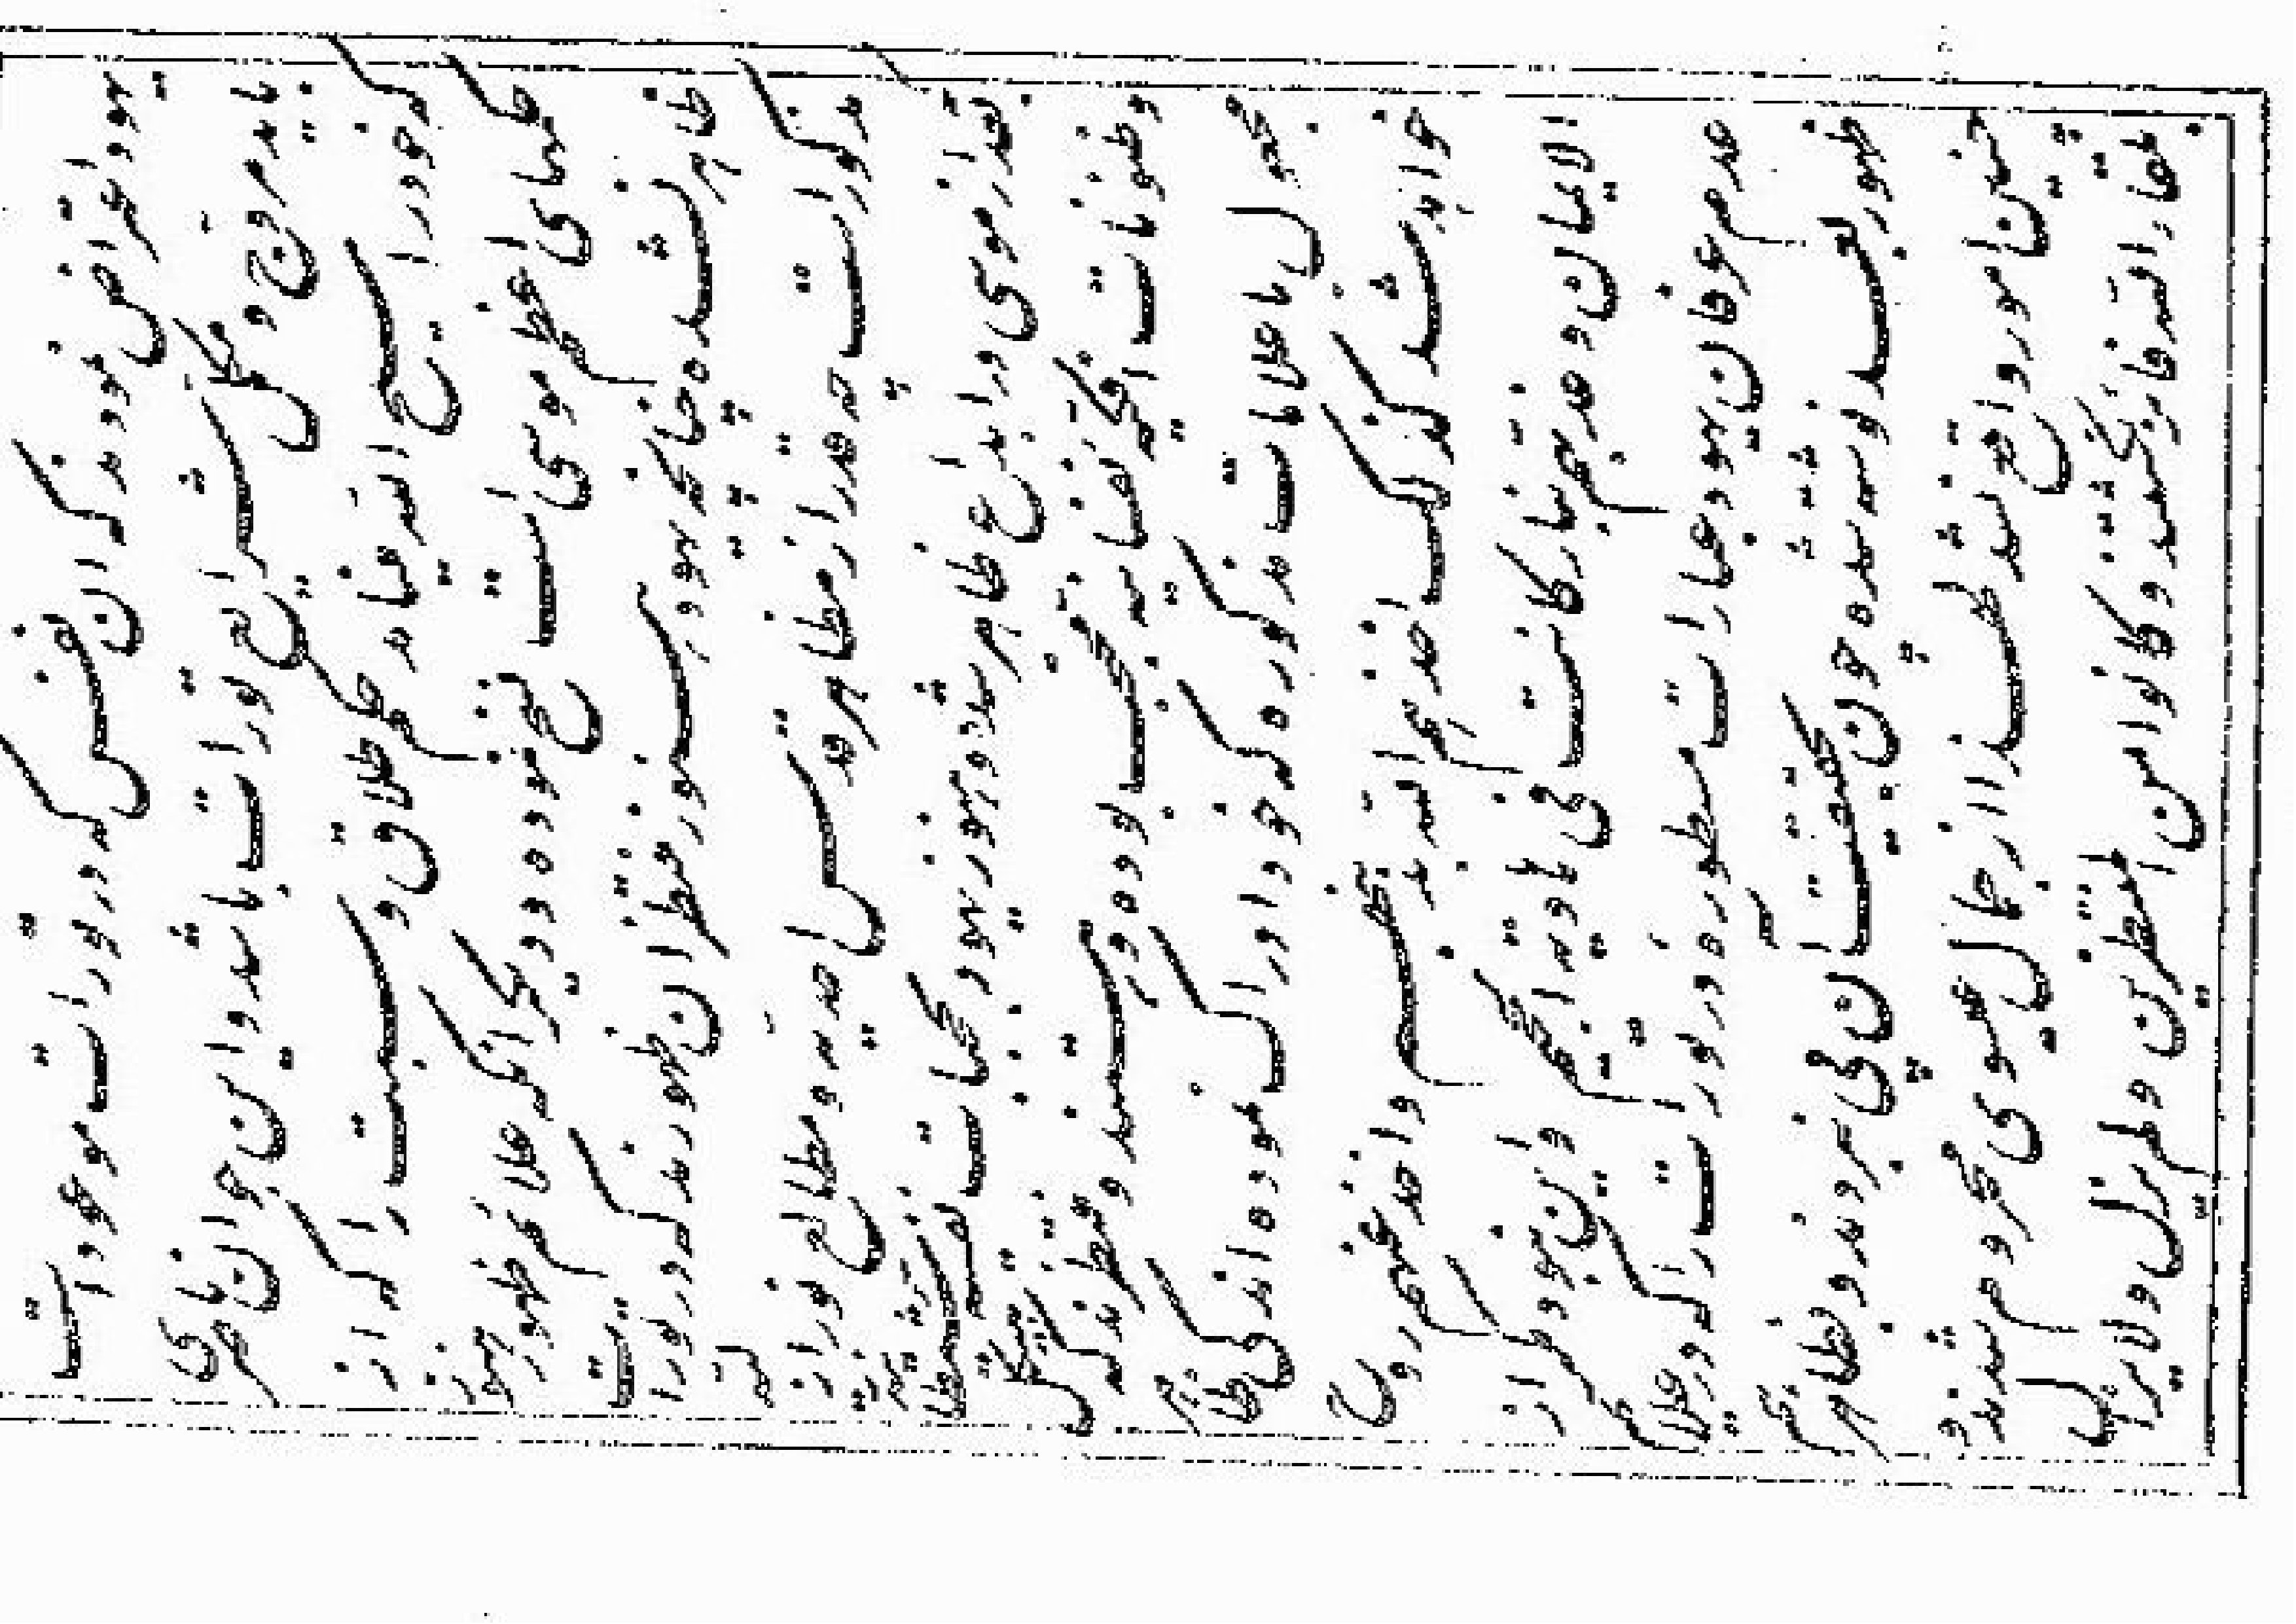 یهود اعتراض نمودند که ان نفسی که در تورات موعود است
باید مروج و مکمل شرایع تورات باشد و این جوان ناصری
که خود را مسیح الله مینامد حکم طلاق و سبت را که از
حکمهای اعظم موسی است نسخ نموده و دیگر انکه علائم ظهور هنوز
ظاهر نشده چنانچه یهود هنوز منتظر ان ظهورند که در تورات
مذکور است چه قدر از مظاهر قدس احدیه و مطالع نور ازلیه
که بعد از موسی در ابداع ظاهر شده و هنوز یهود بحجبات نفسیه شیطانیه
و ظنونات افکیه نفسانیه محتجب بوده و هستند و منتظرند که هیکل
مجعول با علامات مذکوره که خود ادراک نموده اند کی ظاهر
خواهد شد کذلک اخذهم الله بذنبهم و اخذ عنهم روح
الایمان و عذبهم بنار کانت فی هاویة الجحیم و این نبود مگر از
عدم عرفان یهود عبارات مسطوره در تورات را که در علائم
ظهور بعد نوشته شده چون بحقیقت ان پی نبردند و بظاهر هم
چنین امور واقع نشد لهذا از جمال عیسوی محروم شدند و
بلقاء الله فائز نگشتند و کانوا من المنتظرین و لم یزل و لا یزال